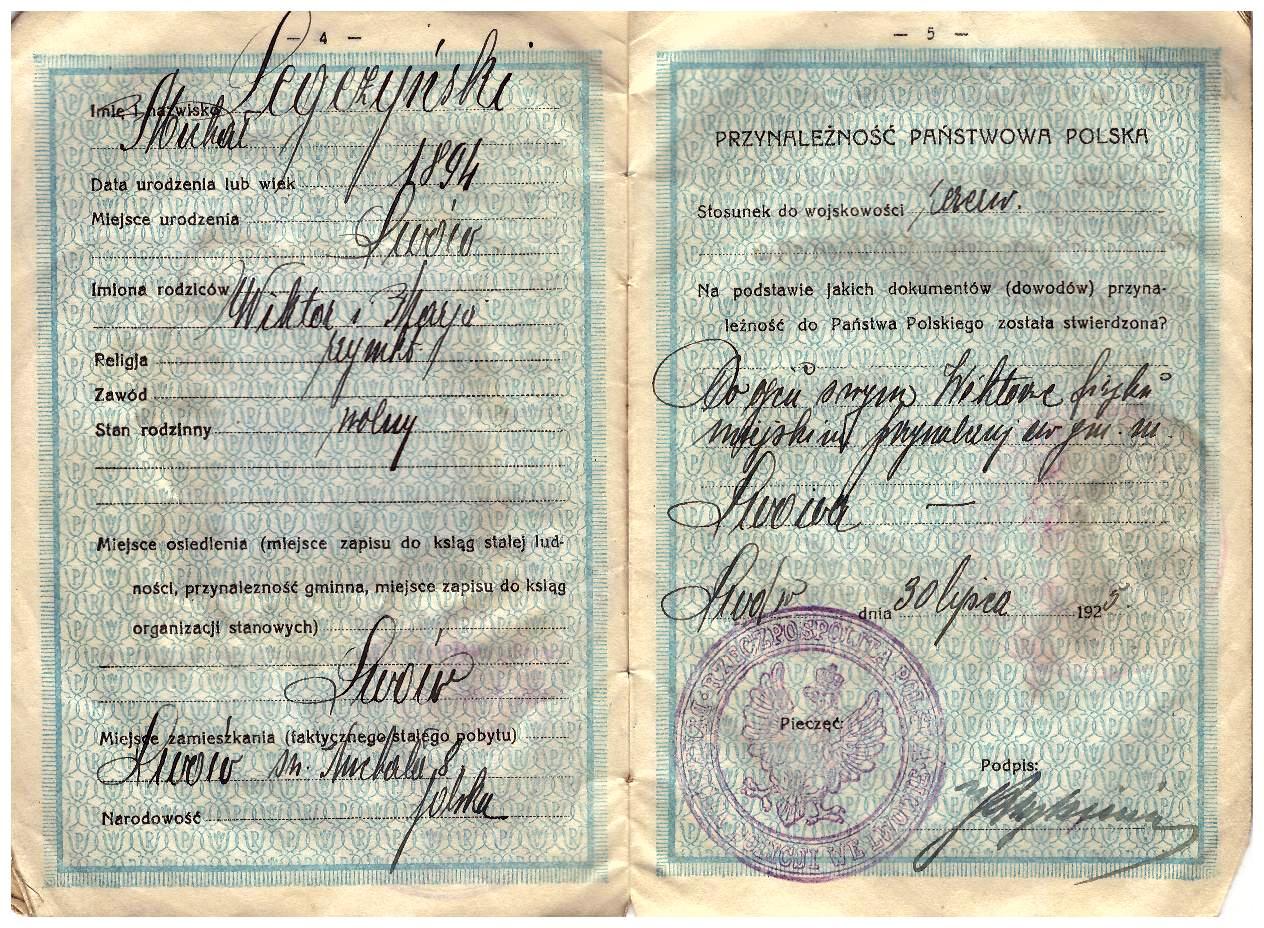 — 4 —
Imię i nazwisko Legeżyński
Michał
Data urodzenia lub wiek 1894
Miejsce urodzenia
Lwów
Imiona rodziców
Wiktor i Marja
Religja rzymkt
Zawód
Stan rodzinny wolny
Miejsce osiedlenia (miejsce zapisu do ksiąg stałej lud-
ności, przynależność gminna, miejsce zapisu do ksiąg
organizacji stanowych)
Lwów
Miejsce zamieszkania (faktycznego/stałego pobytu)
Lwów św. Michała 8
Narodowość polska
— 5 —
PRZYNALEŻNOŚĆ PAŃSTWOWA POLSKA
Stosunek do wojskowości
Na podstawie jakich dokumentów (dowodów) przyna-
leżność do Państwa Polskiego została stwierdzona?
Po ojcu swym Wiktorze
miejskim gm. m.
Lwowa —
Lwów dnia 30 lipca 1925
RZECZPOSPOLITA POLSKA
WE LWOWIE
Pieczęć:
Podpis: